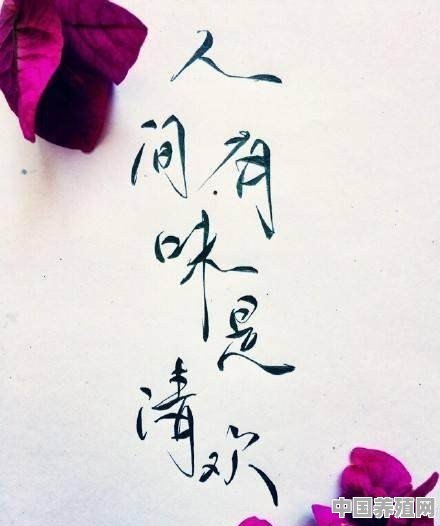 人间有味是清欢
中国养殖网